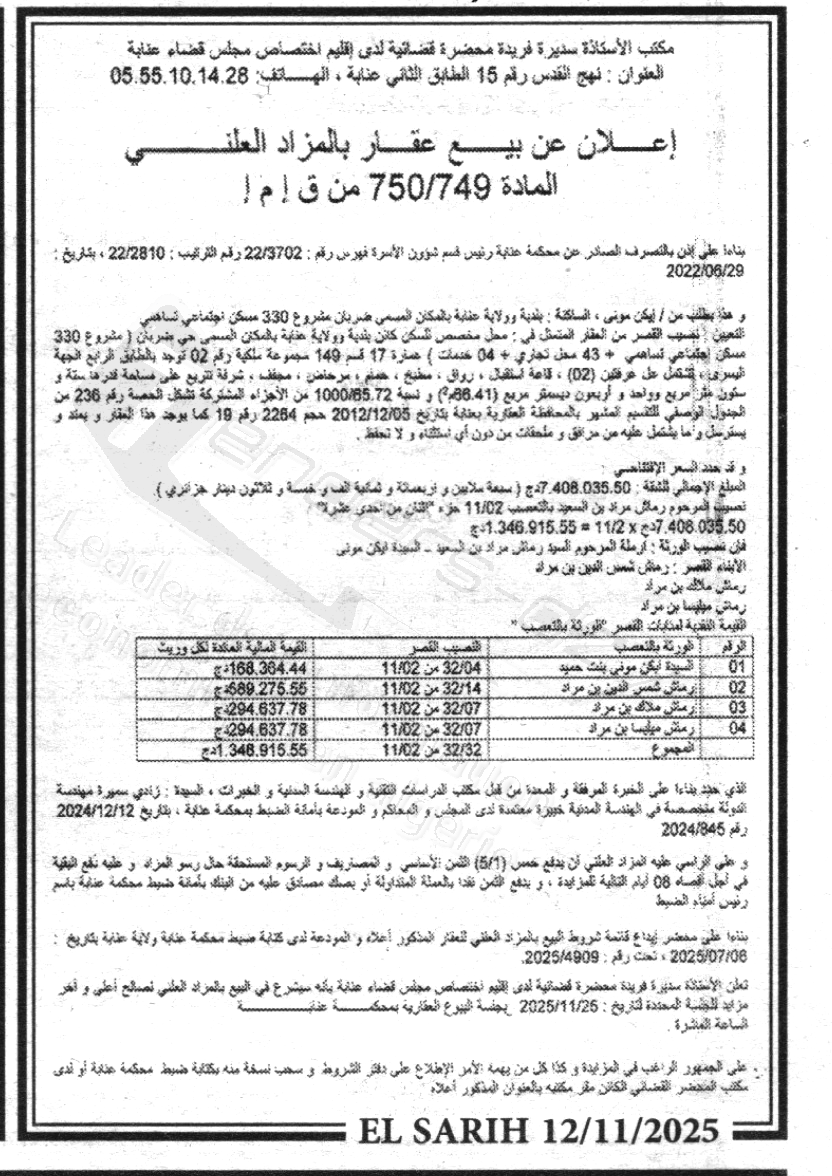 مكتب الأستاذة سديرة فريدة محضرة قضائية لدى إقليم اختصاص مجلس قضاء عنابة
العنوان : نهج القدس رقم 15 الطابق الثاني عنابة ، الهـــاتف: 05.55.10.14.28
إعــــلان عن بيـــــع عقـــار بالمزاد العلنـــــــي
المادة 750/749 من ق إ م إ
بناءا على إذن بالتصرف الصادر عن محكمة عنابة رئيس قسم شؤون الأسرة فهرس رقم : 22/3702 رقم الترتيب : 22/2810 ، بتاريخ :
2022/06/29
و هذا بطلب من / إيكن مونى ، الساكنة : بلدية وولاية عنابة بالمكان المسمى ضربان مشروع 330 مسكن اجتماعي تساهمي
التعيين : نصيب القصر من العقار المتمثل في : محل مخصص للسكن كائن بلدية وولاية عنابة بالمكان المسمى حي ضربان ( مشروع 330
مسكن إجتماعي تساهمي + 43 محل تجاري + 04 خدمات ) عمارة 17 قسم 149 مجموعة ملكية رقم 02 توجد بالطابق الرابع الجهة
اليسرى ، تشتمل على غرفتين (02) ، قاعة استقبال ، رواق ، مطبخ ، حمام ، مرحاض ، مجفف ، شرفة تتربع على مساحة قدرها ستة و
ستون متر مربع وواحد و أربعون ديسمتر مربع (66.41م²) و نسبة 1000/65.72 من الأجزاء المشتركة تشكل الحصة رقم 236 من
الجدول الوصفي للتقسيم المشهر بالمحافظة العقارية بعنابة بتاريخ 2012/12/05 حجم 2264 رقم 19 كما يوجد هذا العقار و يمتد و
يسترسل وما يشتمل عليه من مرافق و ملحقات من دون أي استثناء و لا تحفظ .
و قد حدد السعر الإفتتاحي :
المبلغ الإجمالي للشقة : 7.408.035.50دج ( سبعة ملايين و اربعمائة و ثمانية الف و خمسة و ثلاثون دينار جزائري )
نصيب المرحوم رماش مراد بن السعيد بالتعصب 11/02 جزء "إثنان من احدى عشرة"
7.408.035.50دج x 11/2 = 1.346.915.55دج
فإن نصيب الورثة : أرملة المرحوم السيد رماش مراد بن السعيد – السيدة ايكن مونى
الأبناء القصر : رماش شمس الدين بن مراد
رماش ملاك بن مراد
رماش ميليسا بن مراد
القيمة النقدية لمنابات القصر "الورثة بالتعصب "
الرقم الورثة بالتعصب النصيب القصر القيمة المالية العائدة لكل وريث
01 السيدة ايكن مونى بنت حميد 32/04 من 11/02 168.364.44دج
02 رماش شمس الدين بن مراد 32/14 من 11/02 589.275.55دج
03 رماش ملاك بن مراد 32/07 من 11/02 294.637.78دج
04 رماش ميليسا بن مراد 32/07 من 11/02 294.637.78دج
المجموع 32/32 من 11/02 1.346.915.55دج
الذي حدد بناءا على الخبرة المرفقة و المعدة من قبل مكتب الدراسات التقنية و الهندسة المدنية و الخبرات ، السيدة : زادي سميرة مهندسة
الدولة متخصصة في الهندسة المدنية خبيرة معتمدة لدى المجلس و المحاكم و المودعة بأمانة الضبط بمحكمة عنابة ، بتاريخ 2024/12/12
رقم 2024/845
و على الراسي عليه المزاد العلني أن يدفع خمس (5/1) الثمن الأساسي و المصاريف و الرسوم المستحقة حال رسو المزاد و عليه دفع البقية
في أجل أقصاه 08 أيام التالية للمزايدة ، و يدفع الثمن نقدا بالعملة المتداولة أو بصك مصادق عليه من البنك بأمانة ضبط محكمة عنابة باسم
رئيس أمناء الضبط
بناءا على محضر إيداع قائمة شروط البيع بالمزاد العلني للعقار المذكور أعلاه و المودعة لدى كتابة ضبط محكمة عنابة ولاية عنابة بتاريخ :
2025/07/06 ، تحت رقم : 2025/4909.
تعلن الأستاذة سديرة فريدة محضرة قضائية لدى إقليم اختصاص مجلس قضاء عنابة بأنه سيشرع في البيع بالمزاد العلني لصالح أعلى و أخر
مزايد للجلسة المحددة لتاريخ : 2025/11/25 بجلسة البيوع العقارية بمحكمـــــة عنابـــــــــــة
الساعة العاشرة .
على الجمهور الراغب في المزايدة و كذا كل من يهمه الأمر الإطلاع على دفتر الشروط و سحب نسخة منه بكتابة ضبط محكمة عنابة أو لدى
مكتب المحضر القضائي الكائن مقر مكتبه بالعنوان المذكور أعلاه
EL SARIH 12/11/2025